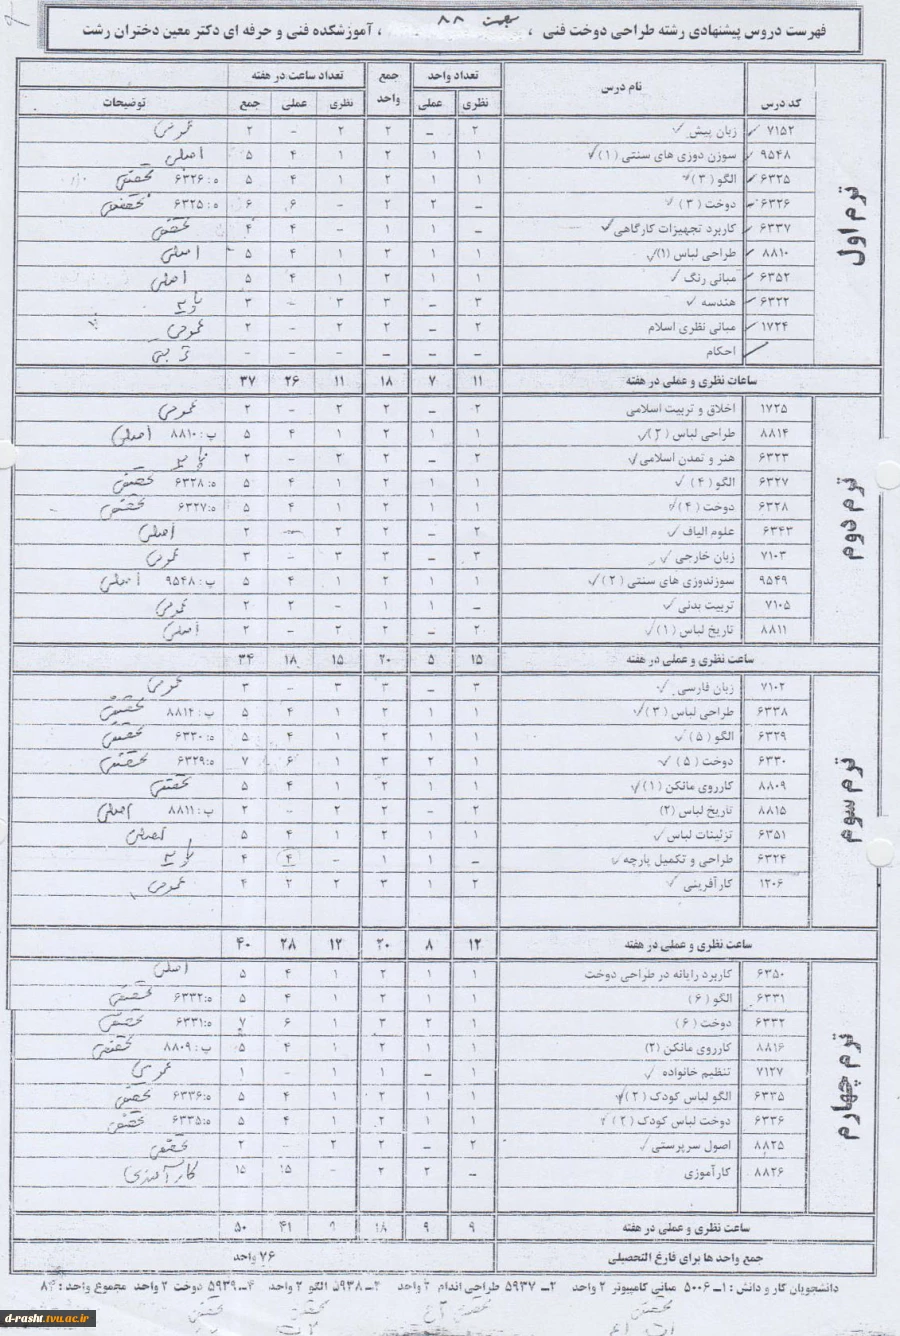 بهمن ۸۸
فهرست دروس پیشنهادی رشته طراحی دوخت فنی ، ، آموزشکده فنی و حرفه ای دکتر معین دختران رشت
کد درس نام درس تعداد واحد جمع واحد تعداد ساعت در هفته توضیحات
نظری عملی نظری عملی جمع
ترم اول
۷۱۵۲ زبان پیش ۲ – ۲ ۲ – ۲ عمومی
۹۵۴۸ سوزن دوزی های سنتی (۱) ۱ ۱ ۲ ۱ ۴ ۵ اصلی
۶۳۲۵ الگو (۳) ۱ ۱ ۲ ۱ ۴ ۵ ه:۶۳۲۶ تخصصی
۶۳۲۶ دوخت (۳) – ۲ ۲ – ۶ ۶ ه:۶۳۲۵ تخصصی
۶۳۳۷ کاربرد تجهیزات کارگاهی – ۱ ۱ – ۴ ۴ تخصصی
۸۸۱۰ طراحی لباس (۱) ۱ ۱ ۲ ۱ ۴ ۵ اصلی
۶۳۵۲ مبانی رنگ ۱ ۱ ۲ ۱ ۴ ۵ اصلی
۶۳۲۲ هندسه ۳ – ۳ ۳ – ۳ پایه
۱۷۲۴ مبانی نظری اسلام ۲ – ۲ ۲ – ۲ عمومی
احکام – – – – – –
ساعات نظری و عملی در هفته ۱۱ ۷ ۱۸ ۱۱ ۲۶ ۳۷
ترم دوم
۱۷۲۵ اخلاق و تربیت اسلامی ۲ – ۲ ۲ – ۲ عمومی
۸۸۱۴ طراحی لباس (۲) ۱ ۱ ۲ ۱ ۴ ۵ پ:۸۸۱۰ اصلی
۶۳۲۳ هنر و تمدن اسلامی ۲ – ۲ ۲ – ۲ پایه
۶۳۲۷ الگو (۴) ۱ ۱ ۲ ۱ ۴ ۵ ه:۶۳۲۸ تخصصی
۶۳۲۸ دوخت (۴) ۱ ۱ ۲ ۱ ۴ ۵ ه:۶۳۲۷ تخصصی
۶۳۴۳ علوم الیاف ۲ – ۲ ۲ – ۲ اصلی
۷۱۰۳ زبان خارجی ۳ – ۳ ۳ – ۳ عمومی
۹۵۴۹ سوزندوزی های سنتی (۲) ۱ ۱ ۲ ۱ ۴ ۵ پ:۹۵۴۸ اصلی
۷۱۰۵ تربیت بدنی – ۱ ۱ – ۲ ۲ عمومی
۸۸۱۱ تاریخ لباس (۱) ۲ – ۲ ۲ – ۲ اصلی
ساعت نظری و عملی در هفته ۱۵ ۵ ۲۰ ۱۵ ۱۸ ۳۴
ترم سوم
۷۱۰۲ زبان فارسی ۳ – ۳ ۳ – ۳ عمومی
۶۳۳۸ طراحی لباس (۳) ۱ ۱ ۲ ۱ ۴ ۵ پ:۸۸۱۴ تخصصی
۶۳۲۹ الگو (۵) ۱ ۱ ۲ ۱ ۴ ۵ ه:۶۳۳۰ تخصصی
۶۳۳۰ دوخت (۵) ۱ ۲ ۳ ۱ ۶ ۷ ه:۶۳۲۹ تخصصی
۸۸۰۹ کارروی مانکن (۱) ۱ ۱ ۲ ۱ ۴ ۵ تخصصی
۸۸۱۵ تاریخ لباس (۲) ۲ – ۲ ۲ – ۲ پ:۸۸۱۱ اصلی
۶۳۵۱ تزئینات لباس ۱ ۱ ۲ ۱ ۴ ۵ اصلی
۶۳۲۴ طراحی و تکمیل پارچه – ۱ ۱ – ۴ ۴ پایه
۱۲۰۶ کارآفرینی ۲ ۱ ۳ ۲ ۲ ۴ عمومی
ساعت نظری و عملی در هفته ۱۲ ۸ ۲۰ ۱۲ ۲۸ ۴۰
ترم چهارم
۶۳۵۰ کاربرد رایانه در طراحی دوخت ۱ ۱ ۲ ۱ ۴ ۵ اصلی
۶۳۳۱ الگو (۶) ۱ ۱ ۲ ۱ ۴ ۵ ه:۶۳۳۲ تخصصی
۶۳۳۲ دوخت (۶) ۱ ۲ ۳ ۱ ۶ ۷ ه:۶۳۳۱ تخصصی
۸۸۱۶ کارروی مانکن (۲) ۱ ۱ ۲ ۱ ۴ ۵ پ:۸۸۰۹ تخصصی
۷۱۲۷ تنظیم خانواده ۱ – ۱ ۱ – ۱ عمومی
۶۳۳۵ الگو لباس کودک (۲) ۱ ۱ ۲ ۱ ۴ ۵ ه:۶۳۳۶ تخصصی
۶۳۳۶ دوخت لباس کودک (۲) ۱ ۱ ۲ ۱ ۴ ۵ ه:۶۳۳۵ تخصصی
۸۸۲۵ اصول سرپرستی ۲ – ۲ ۲ – ۲ تخصصی
۸۸۲۶ کارآموزی – ۲ ۲ – ۱۵ ۱۵ کارآموزی
ساعت نظری و عملی در هفته ۹ ۹ ۱۸ ۹ ۴۱ ۵۰
جمع واحد ها برای فارغ التحصیلی ۷۶ واحد
دانشجویان کار و دانش : ۱ـ ۵۰۰۶ مبانی کامپیوتر ۲ واحد ۲ـ ۵۹۳۷ طراحی اندام ۲ واحد ۳ـ ۵۹۳۸ الگو ۲ واحد ۴ـ ۵۹۳۹ دوخت ۲ واحد مجموع واحد : ۸۴
تخصصی تخصصی تخصصی تخصصی
d-rasht.tvu.ac.ir